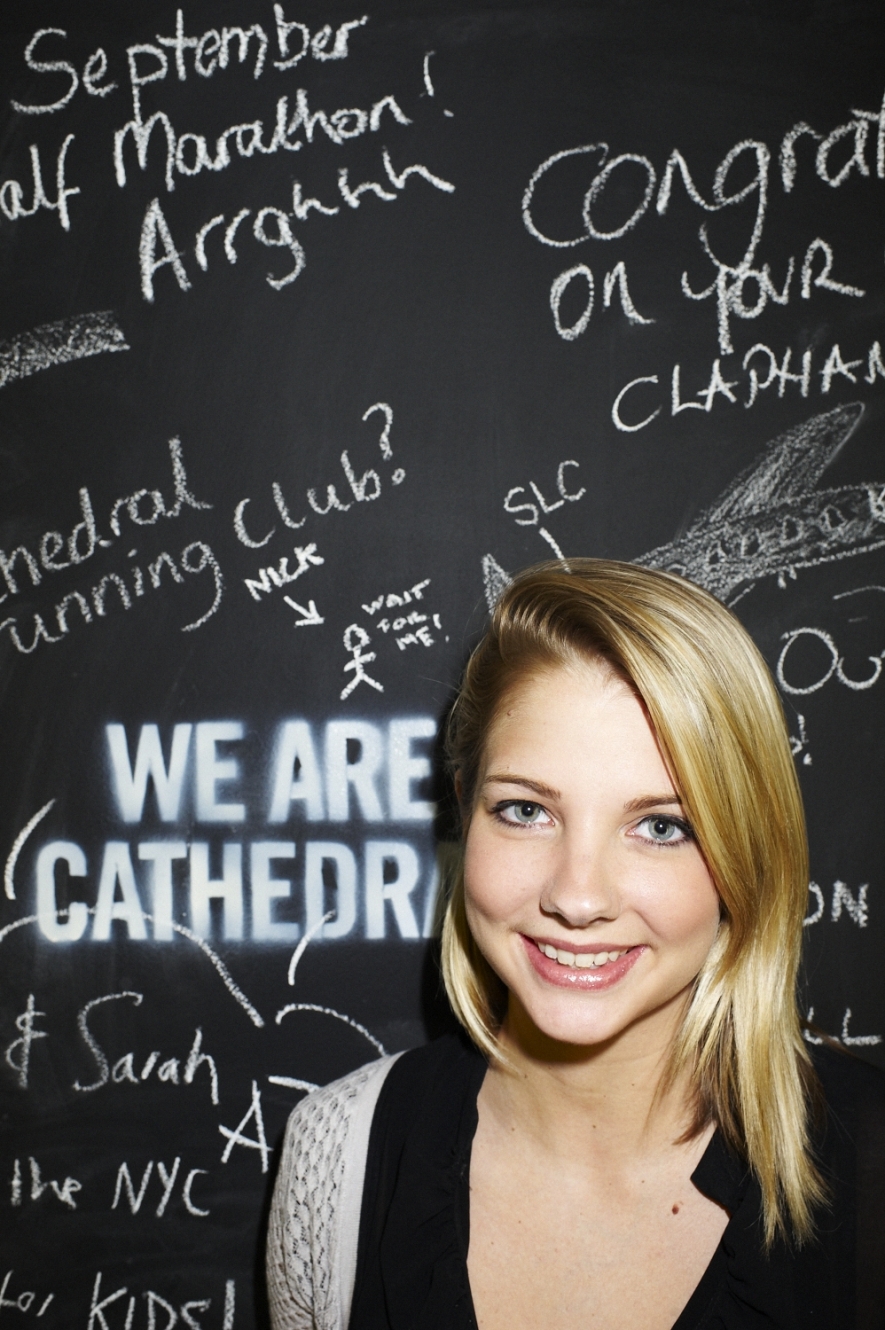 September
alf Marathon!
Arrghhh
Congrat
on your
CLAPHAM
hedral
unning Club?
NICK
WAIT
FOR
ME!
SLC
WE ARE
CATHEDRA
& Sarah
A
the NYC
KIDS!
ON
LL